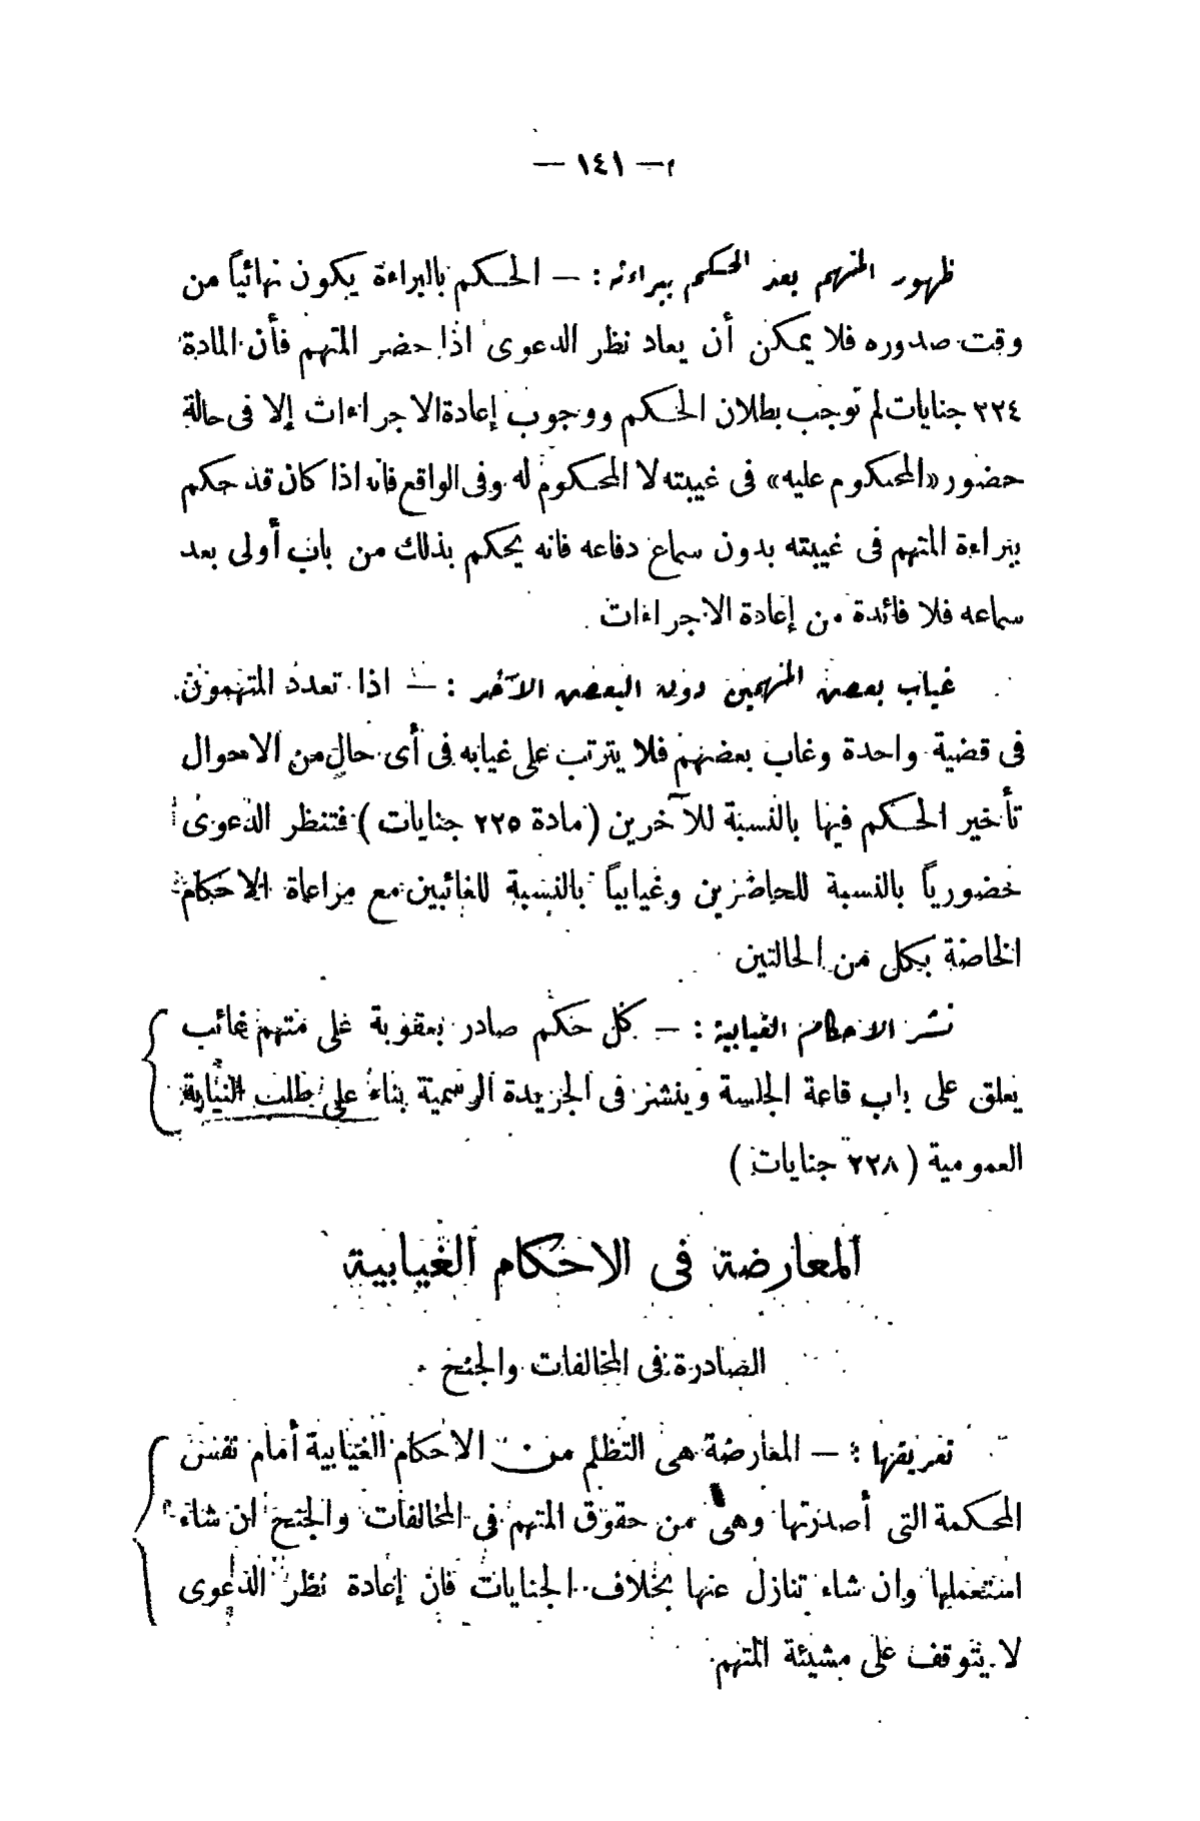 — ١٤١ —
ظهور المتهم بعد الحكم ببراءته : — الحكم بالبراءة يكون نهائياً من
وقت صدوره فلا يمكن أن يعاد نظر الدعوى اذا حضر المتهم فأن المادة
٢٢٤ جنايات لم توجب بطلان الحكم ووجوب إعادة الاجراءات إلا فى حالة
حضور «المحكوم عليه» فى غيبته لا المحكوم له وفى الواقع فانه اذا كان قد حكم
ببراءة المتهم فى غيبته بدون سماع دفاعه فانه يحكم بذلك من باب أولى بعد
سماعه فلا فائدة من إعادة الاجراءات .
غياب بعض المتهمين دون البعض الآخر : — اذا تعدد المتهمون
فى قضية واحدة وغاب بعضهم فلا يترتب على غيابه فى أى حال من الاحوال
تأخير الحكم فيها بالنسبة للآخرين ( مادة ٢٢٥ جنايات ) فتنظر الدعوى
حضورياً بالنسبة للحاضرين وغيابياً بالنسبة للغائبين مع مراعاة الاحكام
الخاصة بكل من الحالتين
نشر الاحكام الغيابية : — كل حكم صادر بعقوبة على متهم غائب
يعلق على باب قاعة الجلسة وينشر فى الجريدة الرسمية بناء على طلب النيابة
العمومية ( ٢٢٨ جنايات )
المعارضة فى الاحكام الغيابية
الصادرة فى المخالفات والجنح
تعريفها : — المعارضة هى التظلم من الاحكام الغيابية أمام نفس
المحكمة التى أصدرتها وهى من حقوق المتهم فى المخالفات والجنح ان شاء
استعملها وان شاء تنازل عنها بخلاف الجنايات فان إعادة نظر الدعوى
لا يتوقف على مشيئة المتهم